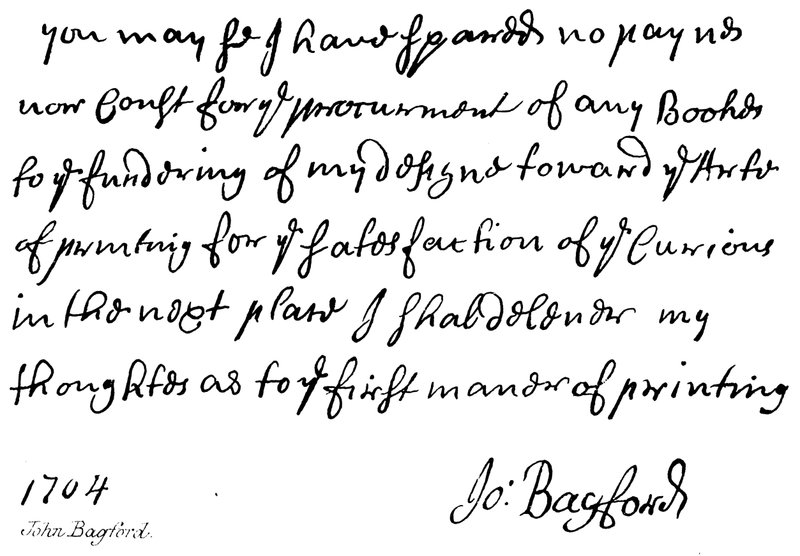 you may se I have spared no paynes
nor Cost for yᵉ procurment of any Bookes
to yᵉ fundering of my designe toward yᵉ Arte
of printing for yᵉ satesfaction of yᵉ Curious
in the next place I shal delener my
thoughtes as to yᵉ first maner of printing
1704
Jo: Bagford
John Bagford.